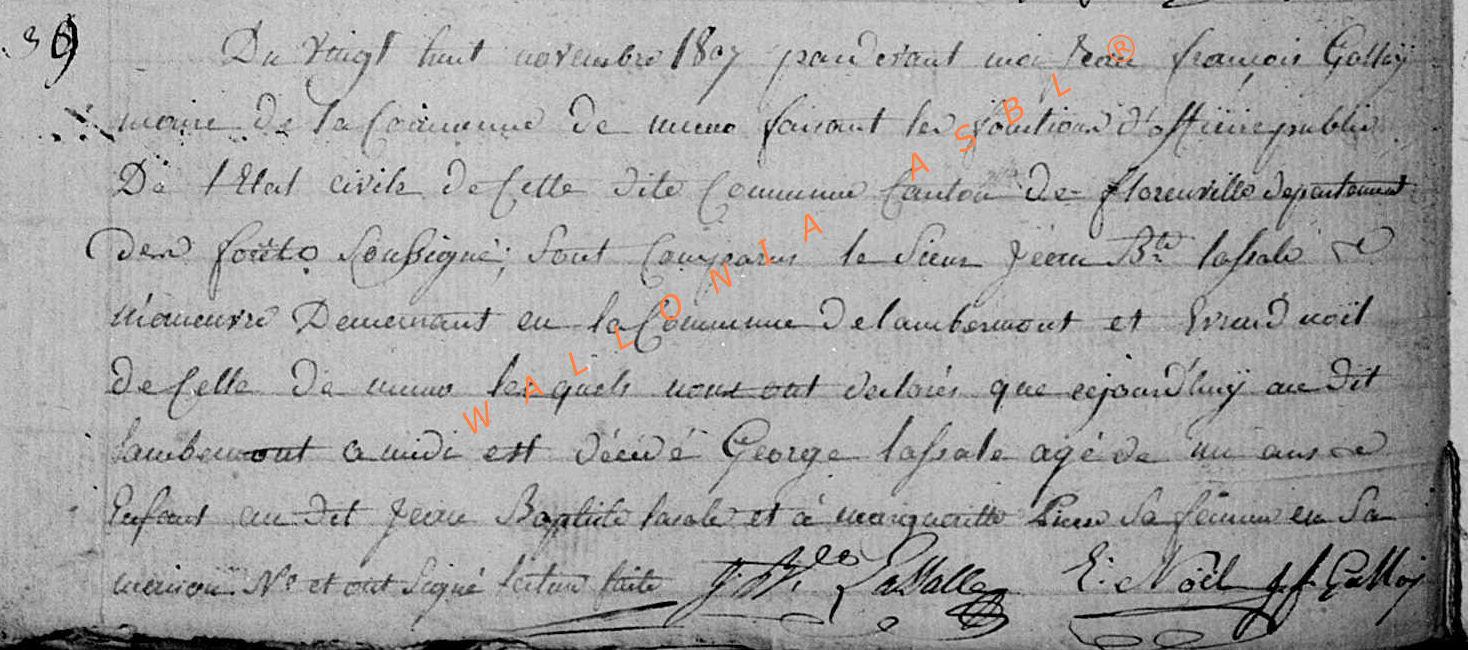 39
Du vingt huit novembre 1807 pardevant moi Jean françois Galloÿ
maire De la Commune de muno faisant les fonctions d'officier public
De l'Etat civile de Celle dite Commune Canton de florenville departement
des forêts Soussigné; Sont Comparus le Sieur Jean Bte lassale
manœuvre Demeurant en la Commune De lambermont et Evrard noël
de Celle de muno les quels nous ont declarés que cejourd'huÿ au dit
lambermont a midi est décédé George lassale agé de un ans
Enfant au dit Jean Baptiste lasale et à margueritte Sa femme en Sa
maison No et ont Signé lecture faite J. Bte LaSalle E: Noël J f Galloÿ
WALLONIA ASBL ®